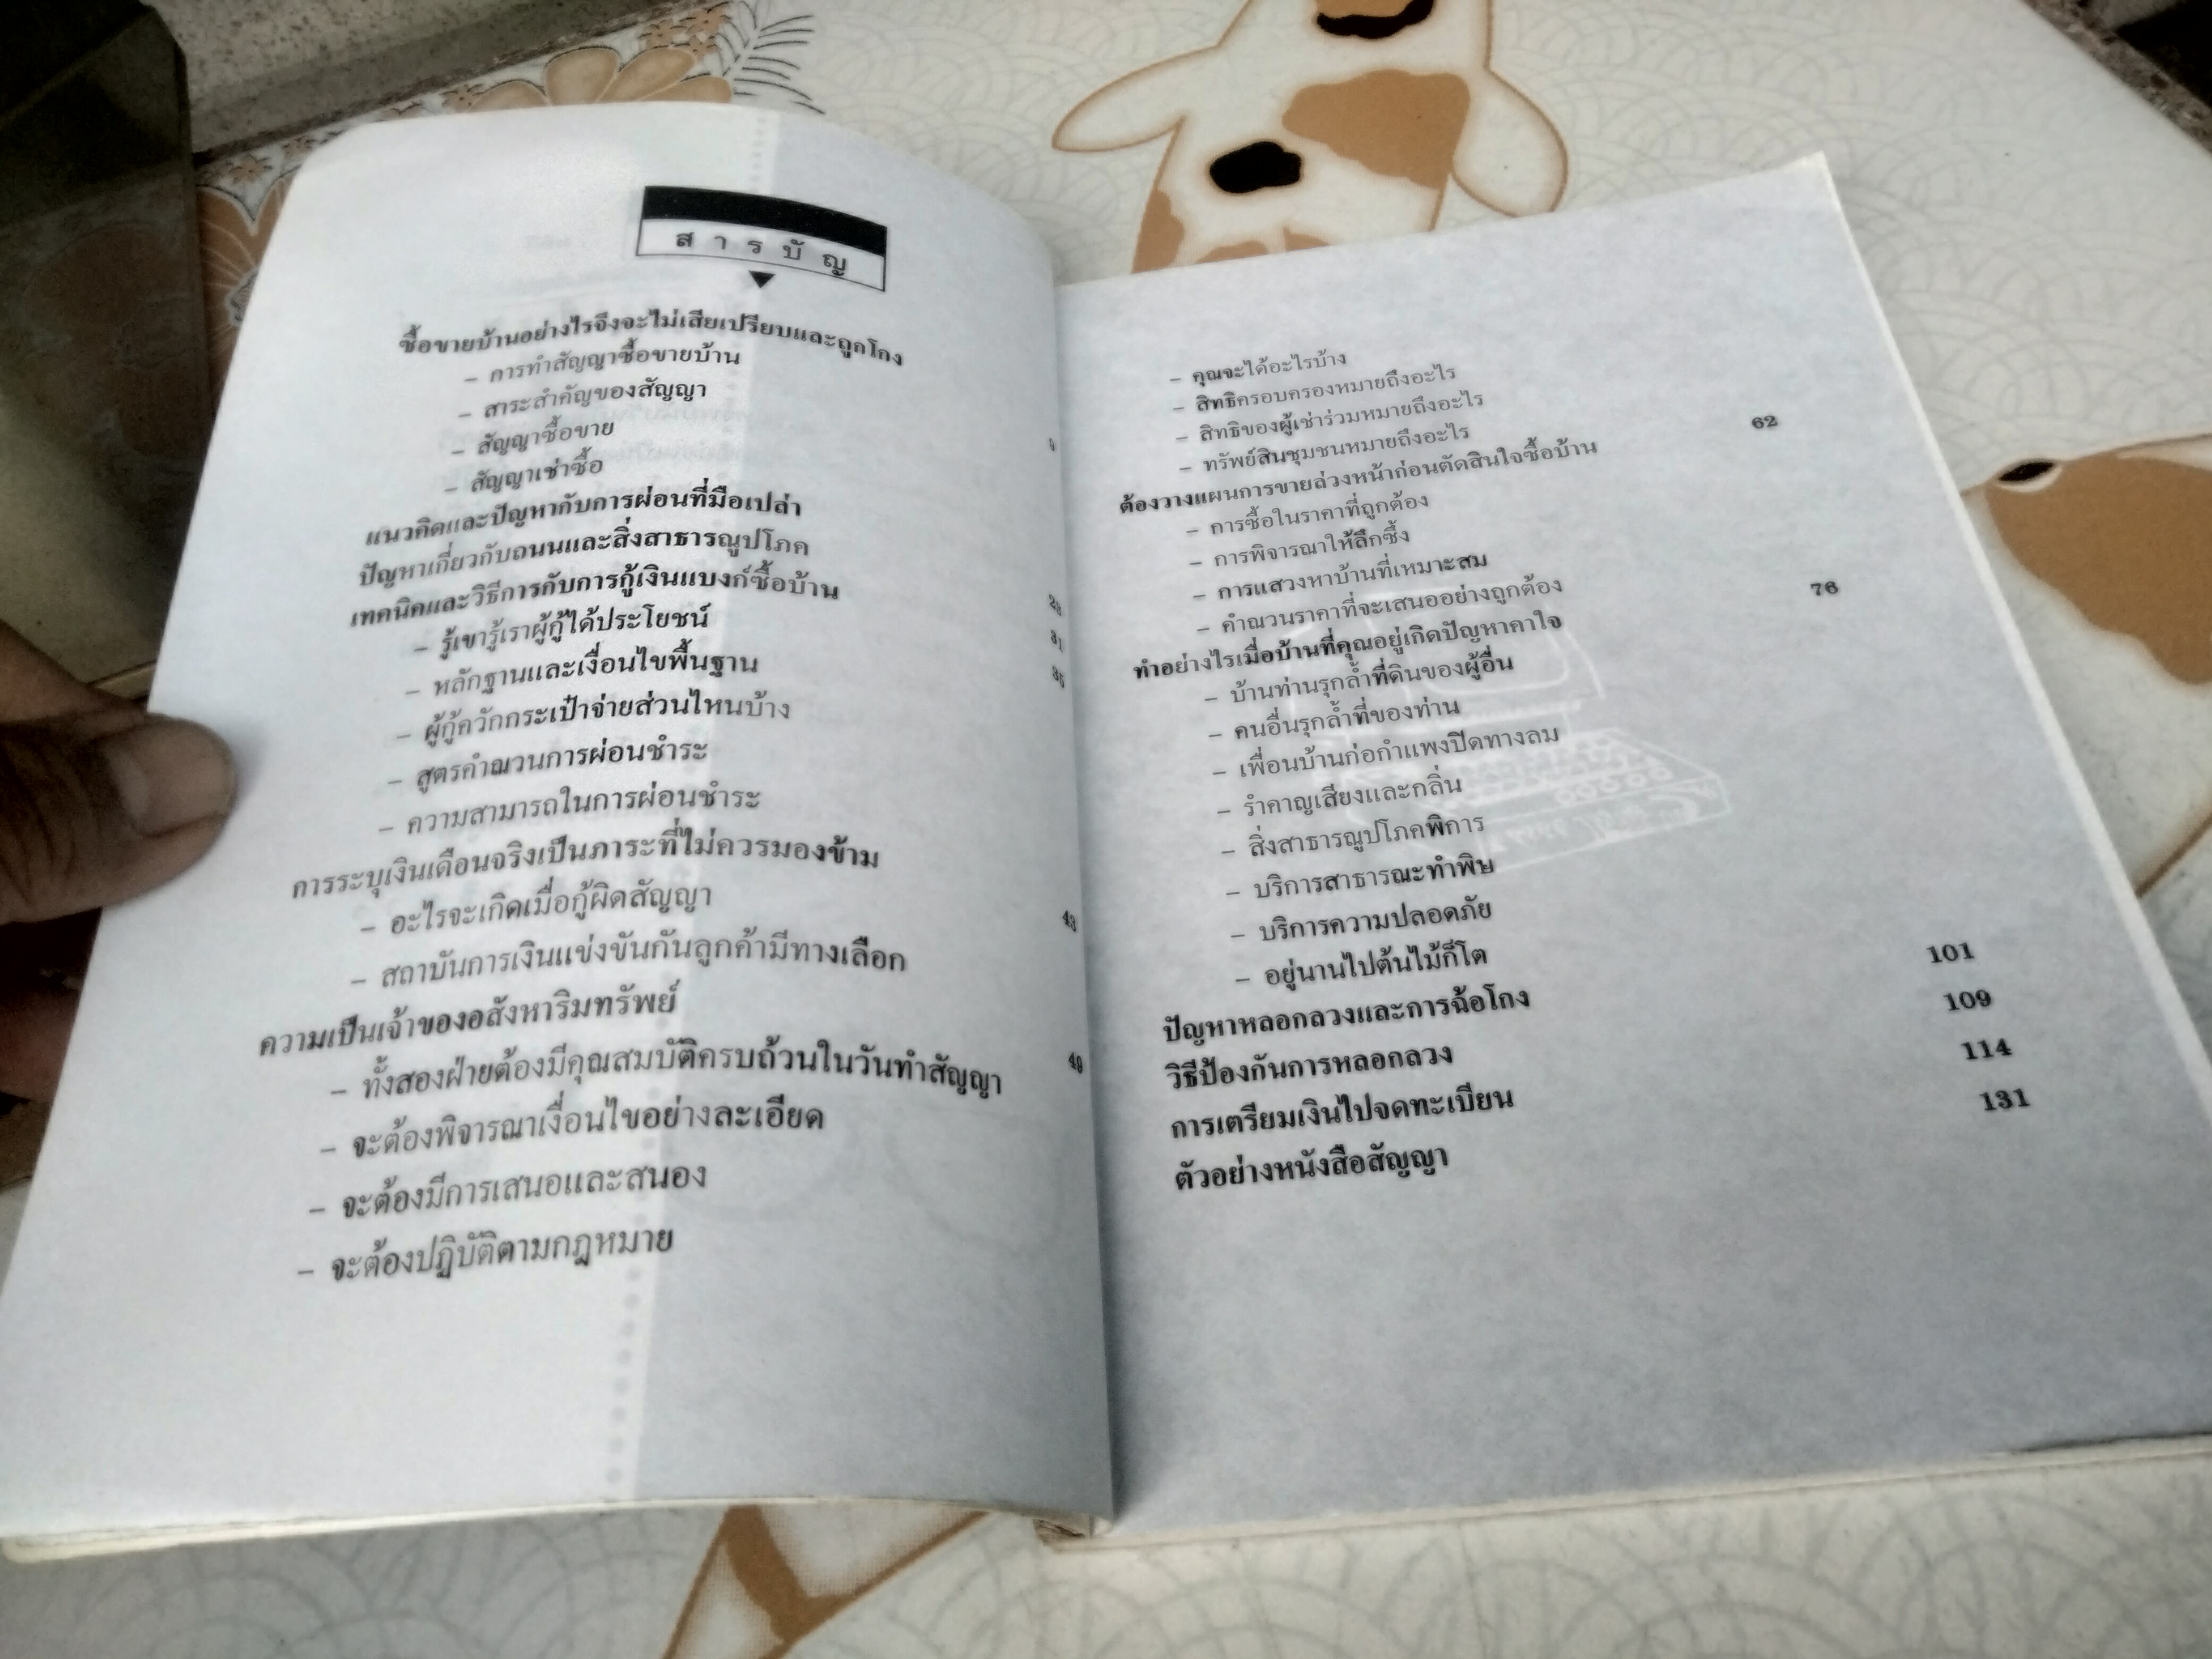 สารบัญ
ซื้อขายบ้านอย่างไรจึงจะไม่เสียเปรียบและถูกโกง 9
– การทำสัญญาซื้อขายบ้าน
– สาระสำคัญของสัญญา
– สัญญาซื้อขาย
– สัญญาเช่าซื้อ
แนวคิดและปัญหากับการผ่อนที่มือเปล่า 23
ปัญหาเกี่ยวกับถนนและสิ่งสาธารณูปโภค 31
เทคนิคและวิธีการกับการกู้เงินแบงก์ซื้อบ้าน 35
– รู้เขารู้เราผู้กู้ได้ประโยชน์
– หลักฐานและเงื่อนไขพื้นฐาน
– ผู้กู้ควักกระเป๋าจ่ายส่วนไหนบ้าง
– สูตรคำณวนการผ่อนชำระ
– ความสามารถในการผ่อนชำระ
การระบุเงินเดือนจริงเป็นภาระที่ไม่ควรมองข้าม 43
– อะไรจะเกิดเมื่อกู้ผิดสัญญา
– สถาบันการเงินแข่งขันกันลูกค้ามีทางเลือก
ความเป็นเจ้าของอสังหาริมทรัพย์ 49
– ทั้งสองฝ่ายต้องมีคุณสมบัติครบถ้วนในวันทำสัญญา
– จะต้องพิจารณาเงื่อนไขอย่างละเอียด
– จะต้องมีการเสนอและสนอง
– จะต้องปฏิบัติตามกฎหมาย
– คุณจะได้อะไรบ้าง
– สิทธิครอบครองหมายถึงอะไร
– สิทธิของผู้เช่าร่วมหมายถึงอะไร
– ทรัพย์สินชุมชนหมายถึงอะไร
ต้องวางแผนการขายล่วงหน้าก่อนตัดสินใจซื้อบ้าน 62
– การซื้อในราคาที่ถูกต้อง
– การพิจารณาให้ลึกซึ้ง
– การแสวงหาบ้านที่เหมาะสม
– คำณวนราคาที่จะเสนออย่างถูกต้อง
ทำอย่างไรเมื่อบ้านที่คุณอยู่เกิดปัญหาคาใจ 76
– บ้านท่านรุกล้ำที่ดินของผู้อื่น
– คนอื่นรุกล้ำที่ของท่าน
– เพื่อนบ้านก่อกำแพงปิดทางลม
– รำคาญเสียงและกลิ่น
– สิ่งสาธารณูปโภคพิการ
– บริการสาธารณะทำพิษ
– บริการความปลอดภัย
– อยู่นานไปต้นไม้ก็โต
ปัญหาหลอกลวงและการฉ้อโกง 101
วิธีป้องกันการหลอกลวง 109
การเตรียมเงินไปจดทะเบียน 114
ตัวอย่างหนังสือสัญญา 131